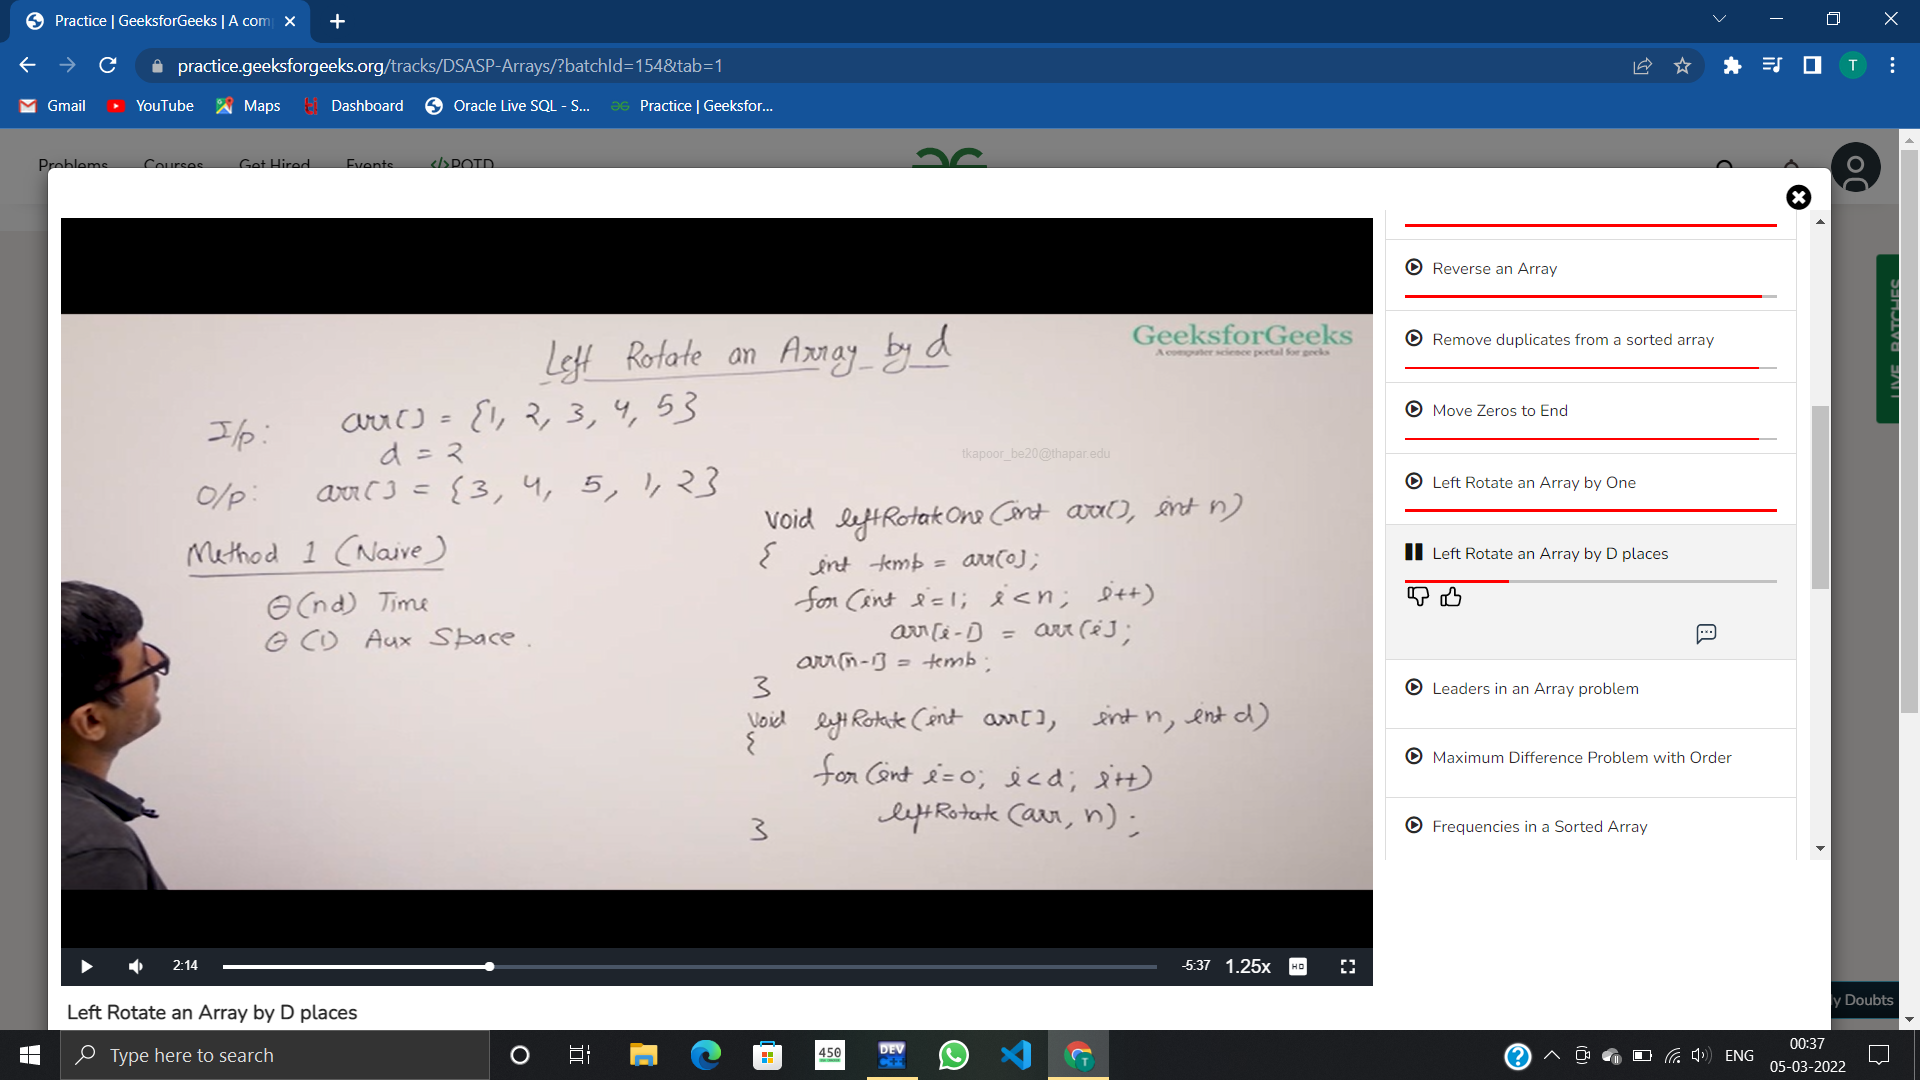 Practice | GeeksforGeeks | A com
practice.geeksforgeeks.org/tracks/DSASP-Arrays/?batchId=154&tab=1
T
Gmail YouTube Maps Dashboard Oracle Live SQL - S... Practice | Geeksfor...
Problems Courses Get Hired Events </>POTD
LIVE BATCHES
GeeksforGeeks
A computer science portal for geeks
Left Rotate an Array by d
I/p: arr[] = {1, 2, 3, 4, 5}
d = 2
O/p: arr[] = {3, 4, 5, 1, 2}
Method 1 (Naive)
Θ(nd) Time
Θ(1) Aux Space.
tkapoor_be20@thapar.edu
void leftRotateOne(int arr[], int n)
{
int temp = arr[0];
for(int i=1; i<n; i++)
arr[i-1] = arr[i];
arr[n-1] = temp;
}
void leftRotate(int arr[], int n, int d)
{
for(int i=0; i<d; i++)
leftRotate(arr, n);
}
2:14 -5:37 1.25x HD
Left Rotate an Array by D places
Reverse an Array
Remove duplicates from a sorted array
Move Zeros to End
Left Rotate an Array by One
Left Rotate an Array by D places
Leaders in an Array problem
Maximum Difference Problem with Order
Frequencies in a Sorted Array
ly Doubts
Type here to search
450
DEV
C++
T
ENG
00:37
05-03-2022